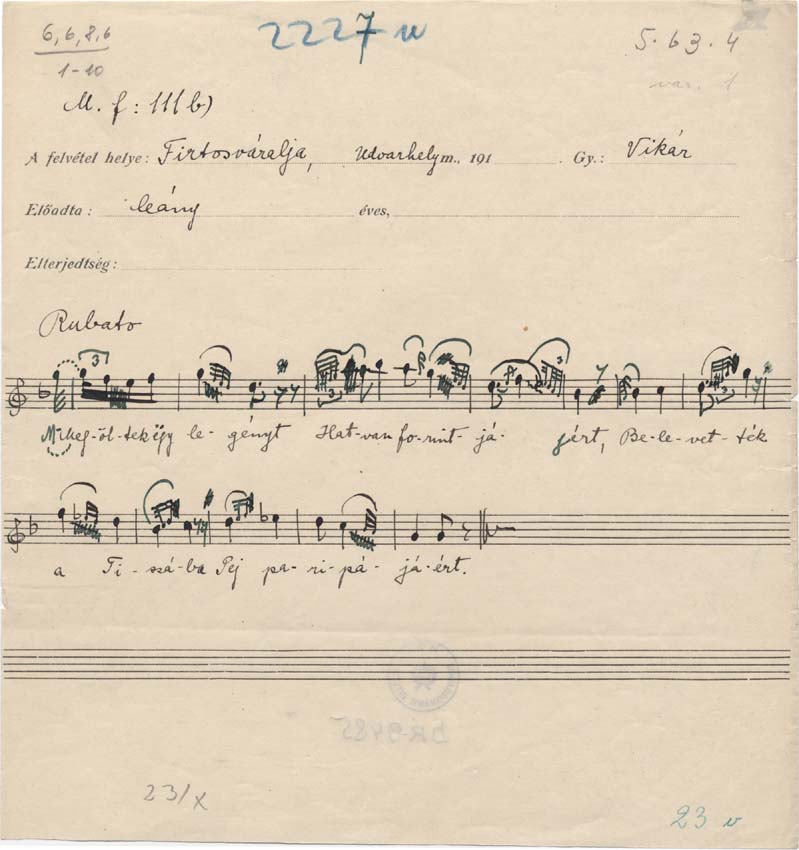 6, 6, 8, 6
1-10
2227
5. 63. 4
var. 1
M. f: 111 b)
A felvétel helye: Firtosváralja, Udvarhely m., 191 . Gy.: Vikár
Előadta: leány éves,
Elterjedtség:
Rubato
3 3 3
Meg-öl-tek egy le-gényt Hat-van fo-rint-já-jért, Be-le-vet-ték
a Ti-szá-ba Pej pa-ri-pá-já-ért.
23/X
23